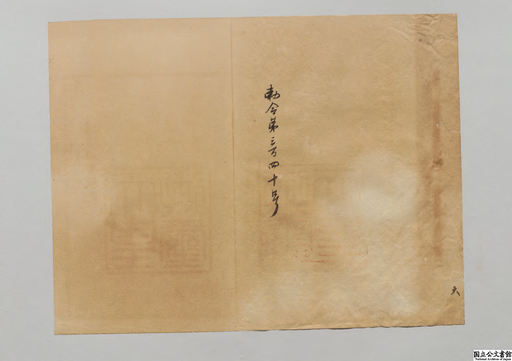 勅令第三百四十号
大
国立公文書館
National Archives of Japan